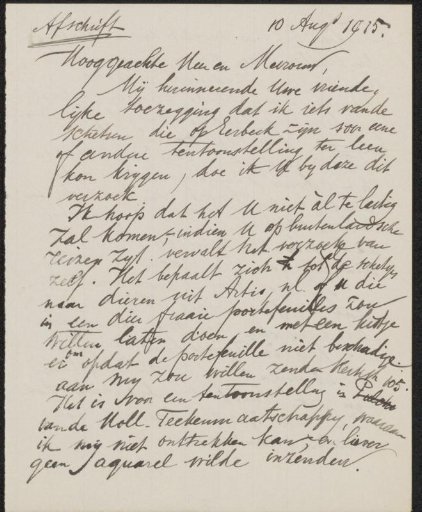 Afschrift
10 Augs 1915.
Hooggeachte Heer en Mevrouw,
Mij herinnerende Uwe vriende-
lijke toezegging dat ik iets van de
schetsen die op Eerbeek zijn voor eene
of andere tentoonstelling ter leen
kon krygen, doe ik U by deze dit
verzoek
Ik hoop dat het U niet àl te lastig
zal komen, indien U op buitenlandsche
reizen zyt. vervalt het verzoek van
zelf. Het bepaalt zich tot de schetsjes
naar dieren uit Artis, nl. of U die
in een dier fraaie portefeuilles zou
willen laten doen en met een hitje
er om opdat de portefeuille niet beschadige
aan my zou willen zenden 105.
Het is voor een tentoonstelling in
van de Holl. Teekenmaatschappy, waaraan
ik my niet onttrekken kan, en liever
geen aquarel wilde inzenden.